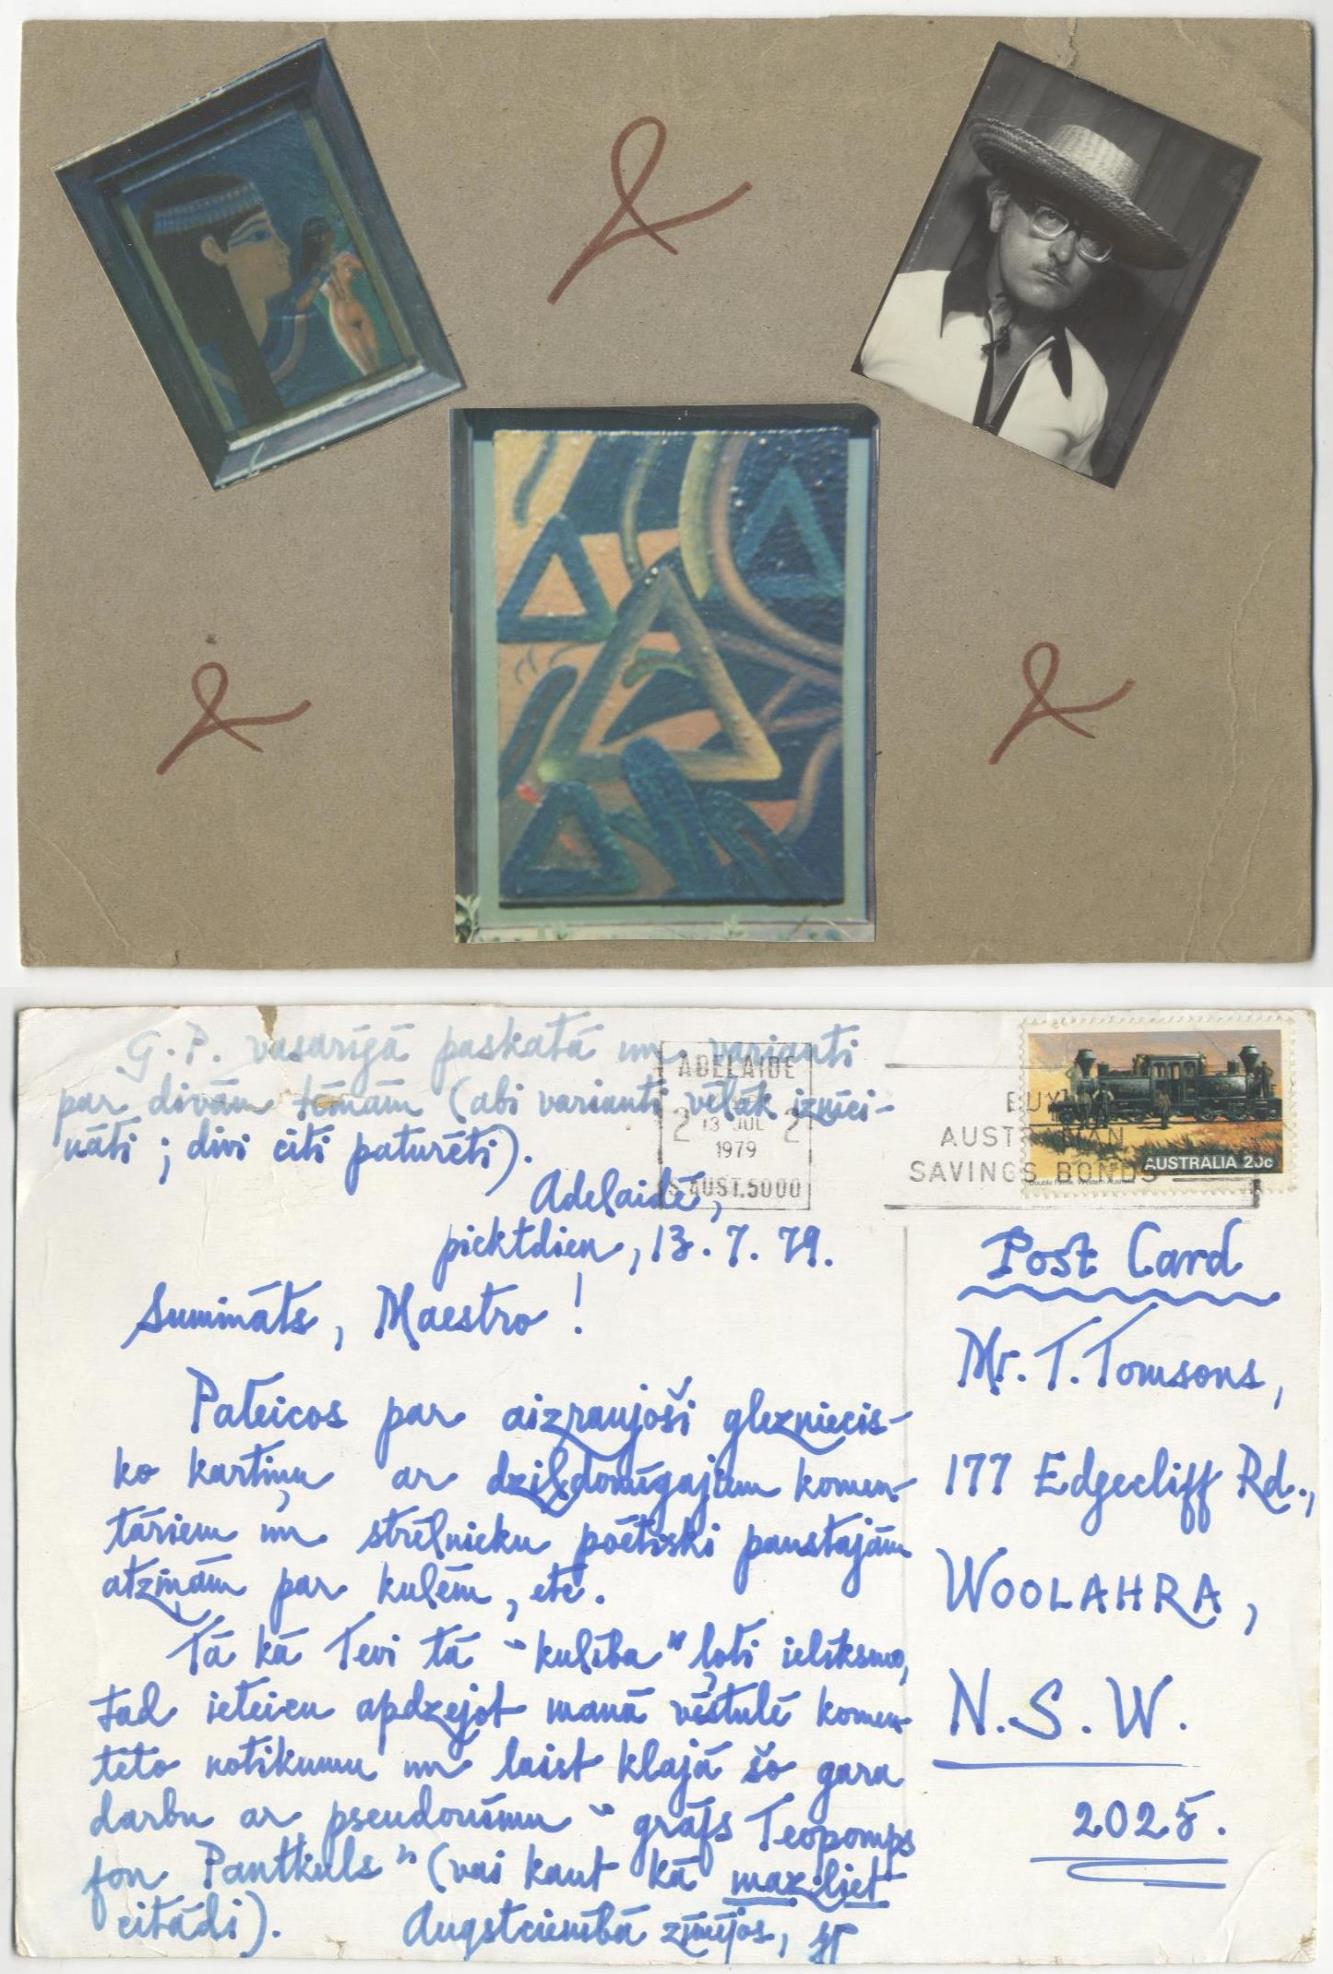 G. P. vasarīgā paskatā un varianti
par divām tēmām (abi varianti vēlāk iznīci-
nāti; divi citi paturēti).
ADELAIDE
2 13 JUL 2
1979
S. AUST. 5000
BUY
AUSTRALIAN
SAVINGS BONDS
AUSTRALIA 20c
Adelaidē,
piektdien, 13. 7. 79.
Sumināts, Maestro!
Pateicos par aizraujoši glezniecis-
ko kartiņu ar dziļdomīgajiem komen-
tāriem un strēlnieku poētiski paustajām
atziņām par kuļēm, etc.
Tā kā Tevi tā "kulība" ļoti ielīksmo,
tad ieteicu apdzejot manā vēstulē komen-
teto notikumu un laist klajā šo gara
darbu ar pseudonīmu "grāfs Teopomps
fon Pantkuls" (vai kaut kā mazliet
citādi).
Augstcienībā zīmējos, GP
Post Card
Mr. T. Tomsons,
177 Edgecliff Rd.,
WOOLAHRA,
N.S.W.
2025.